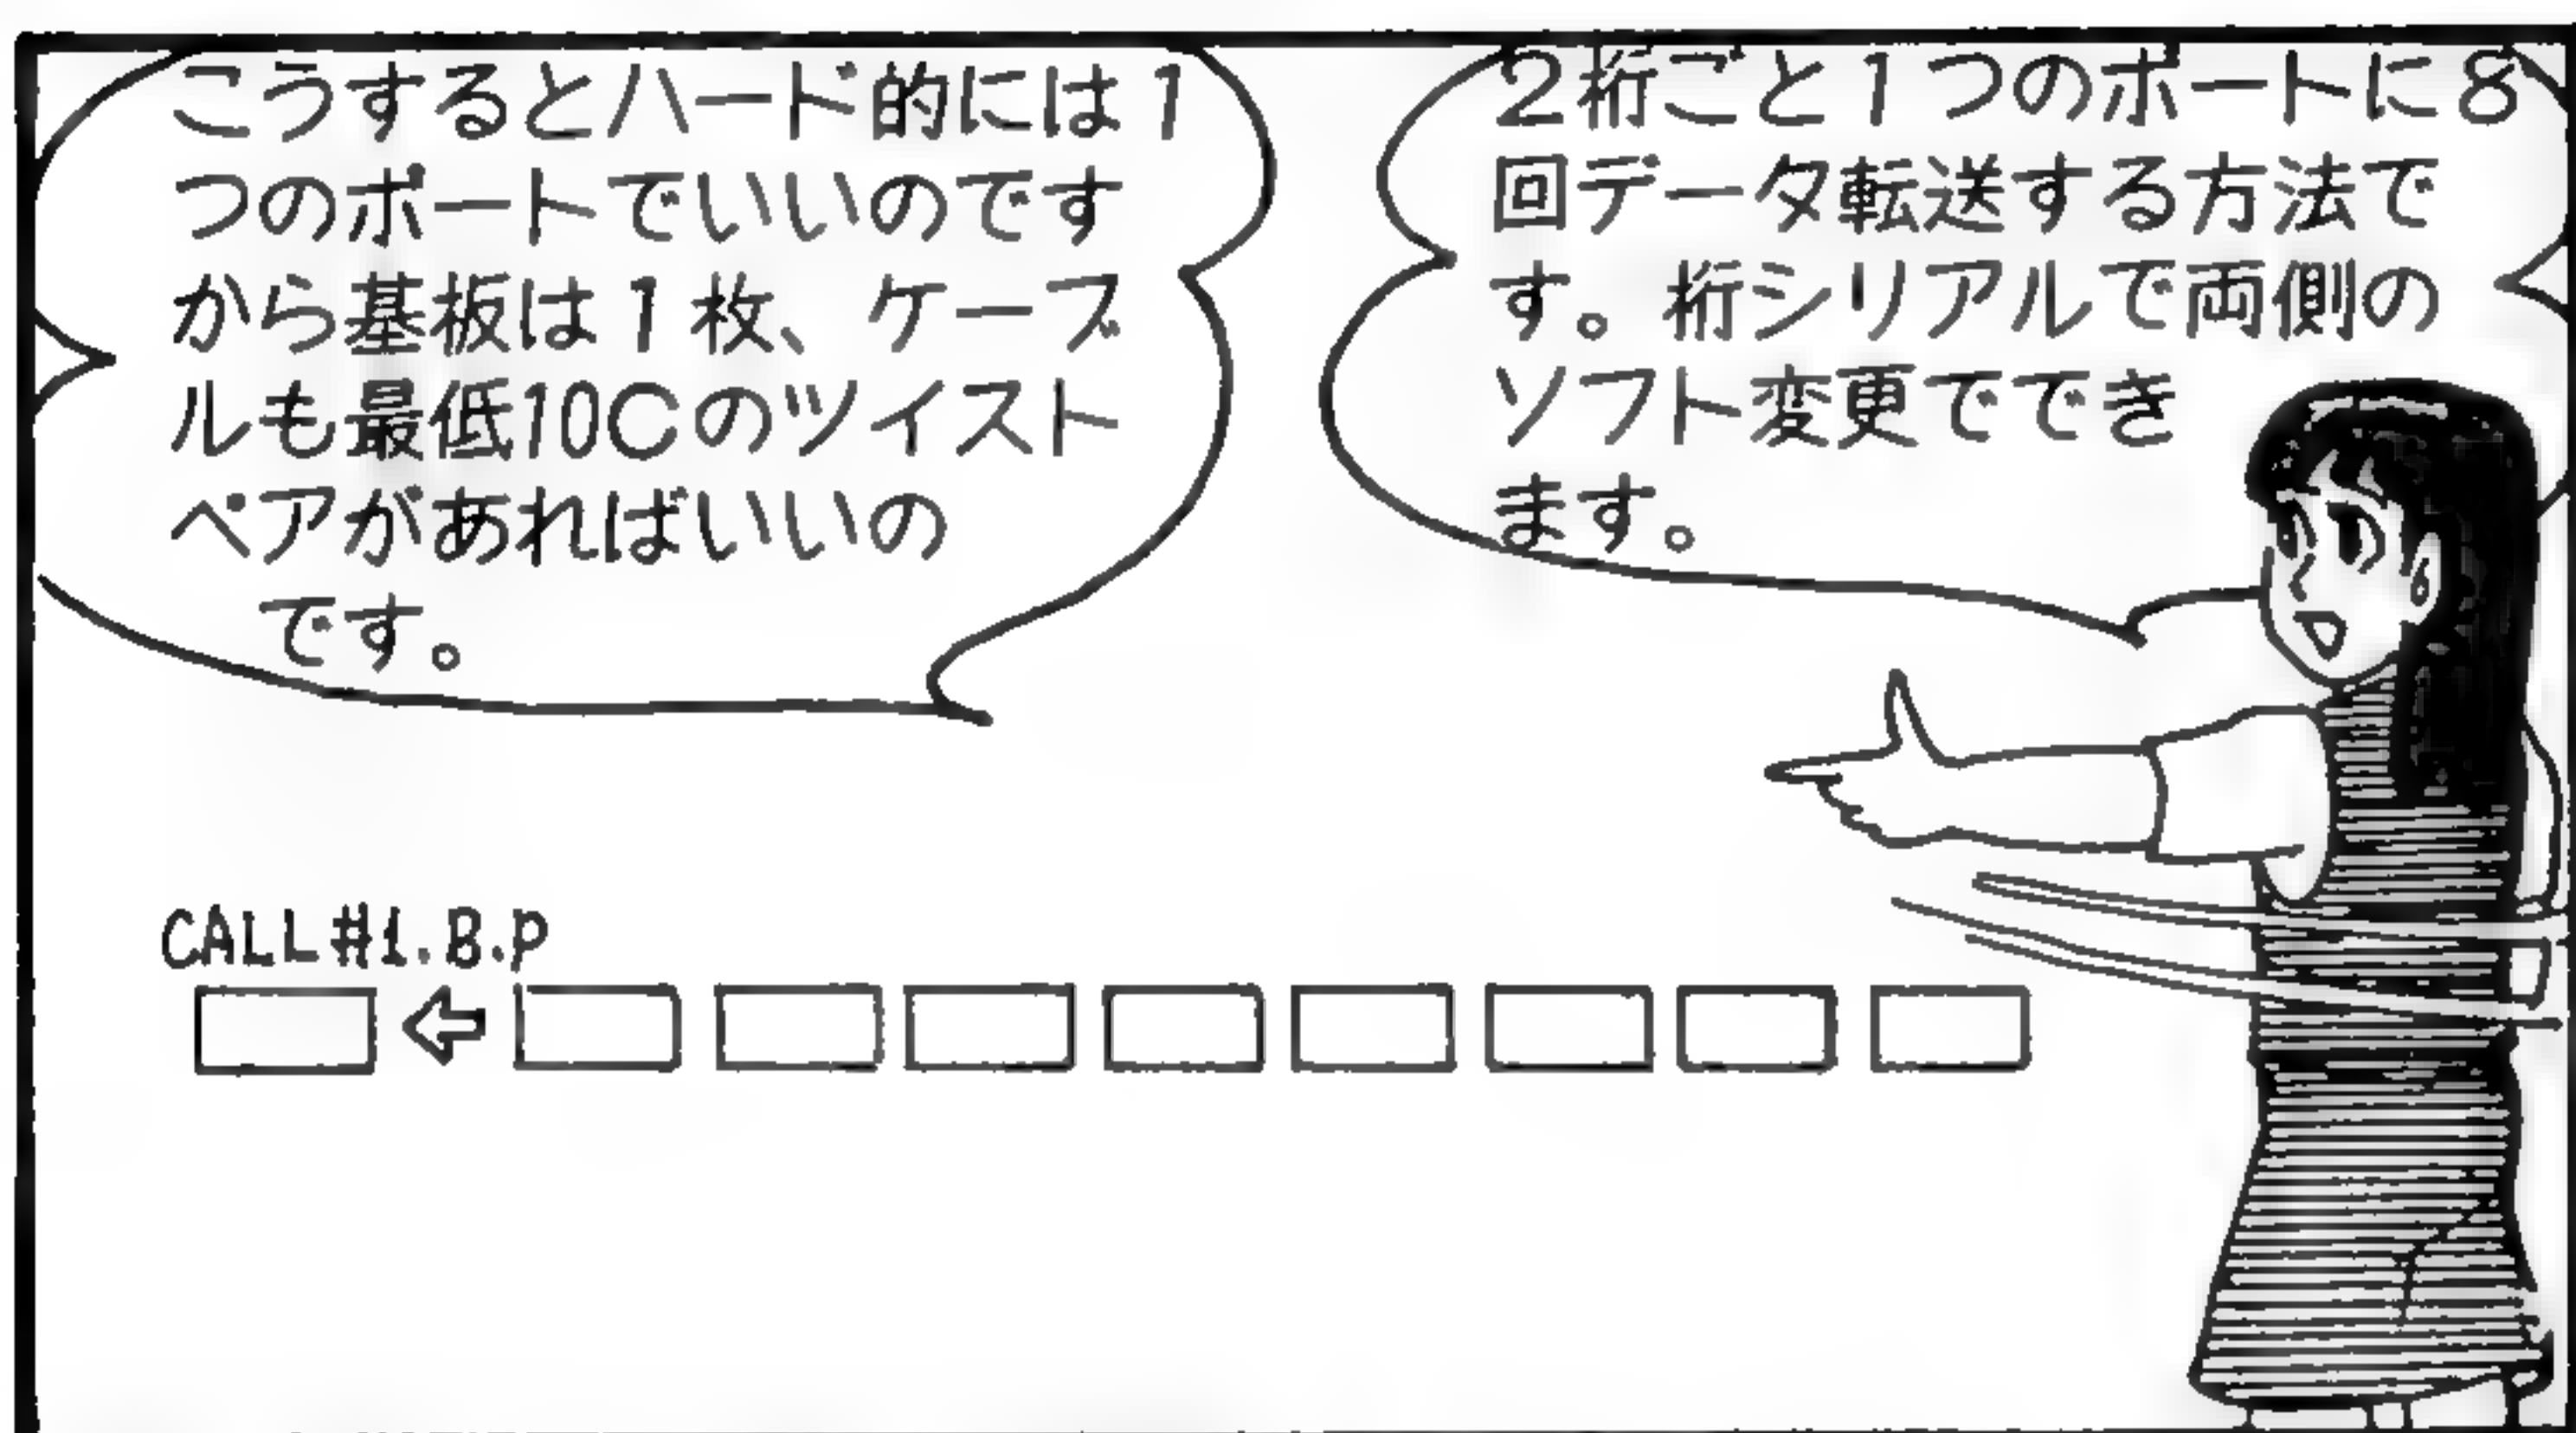 2桁ごと1つのポートに8
回データ転送する方法で
す。桁シリアルで両側の
ソフト変更ででき
ます。
こうするとハード的には1
つのポートでいいのです
から基板は1枚、ケーブ
ルも最低10Cのツイスト
ペアがあればいいの
です。
CALL#1.B.P